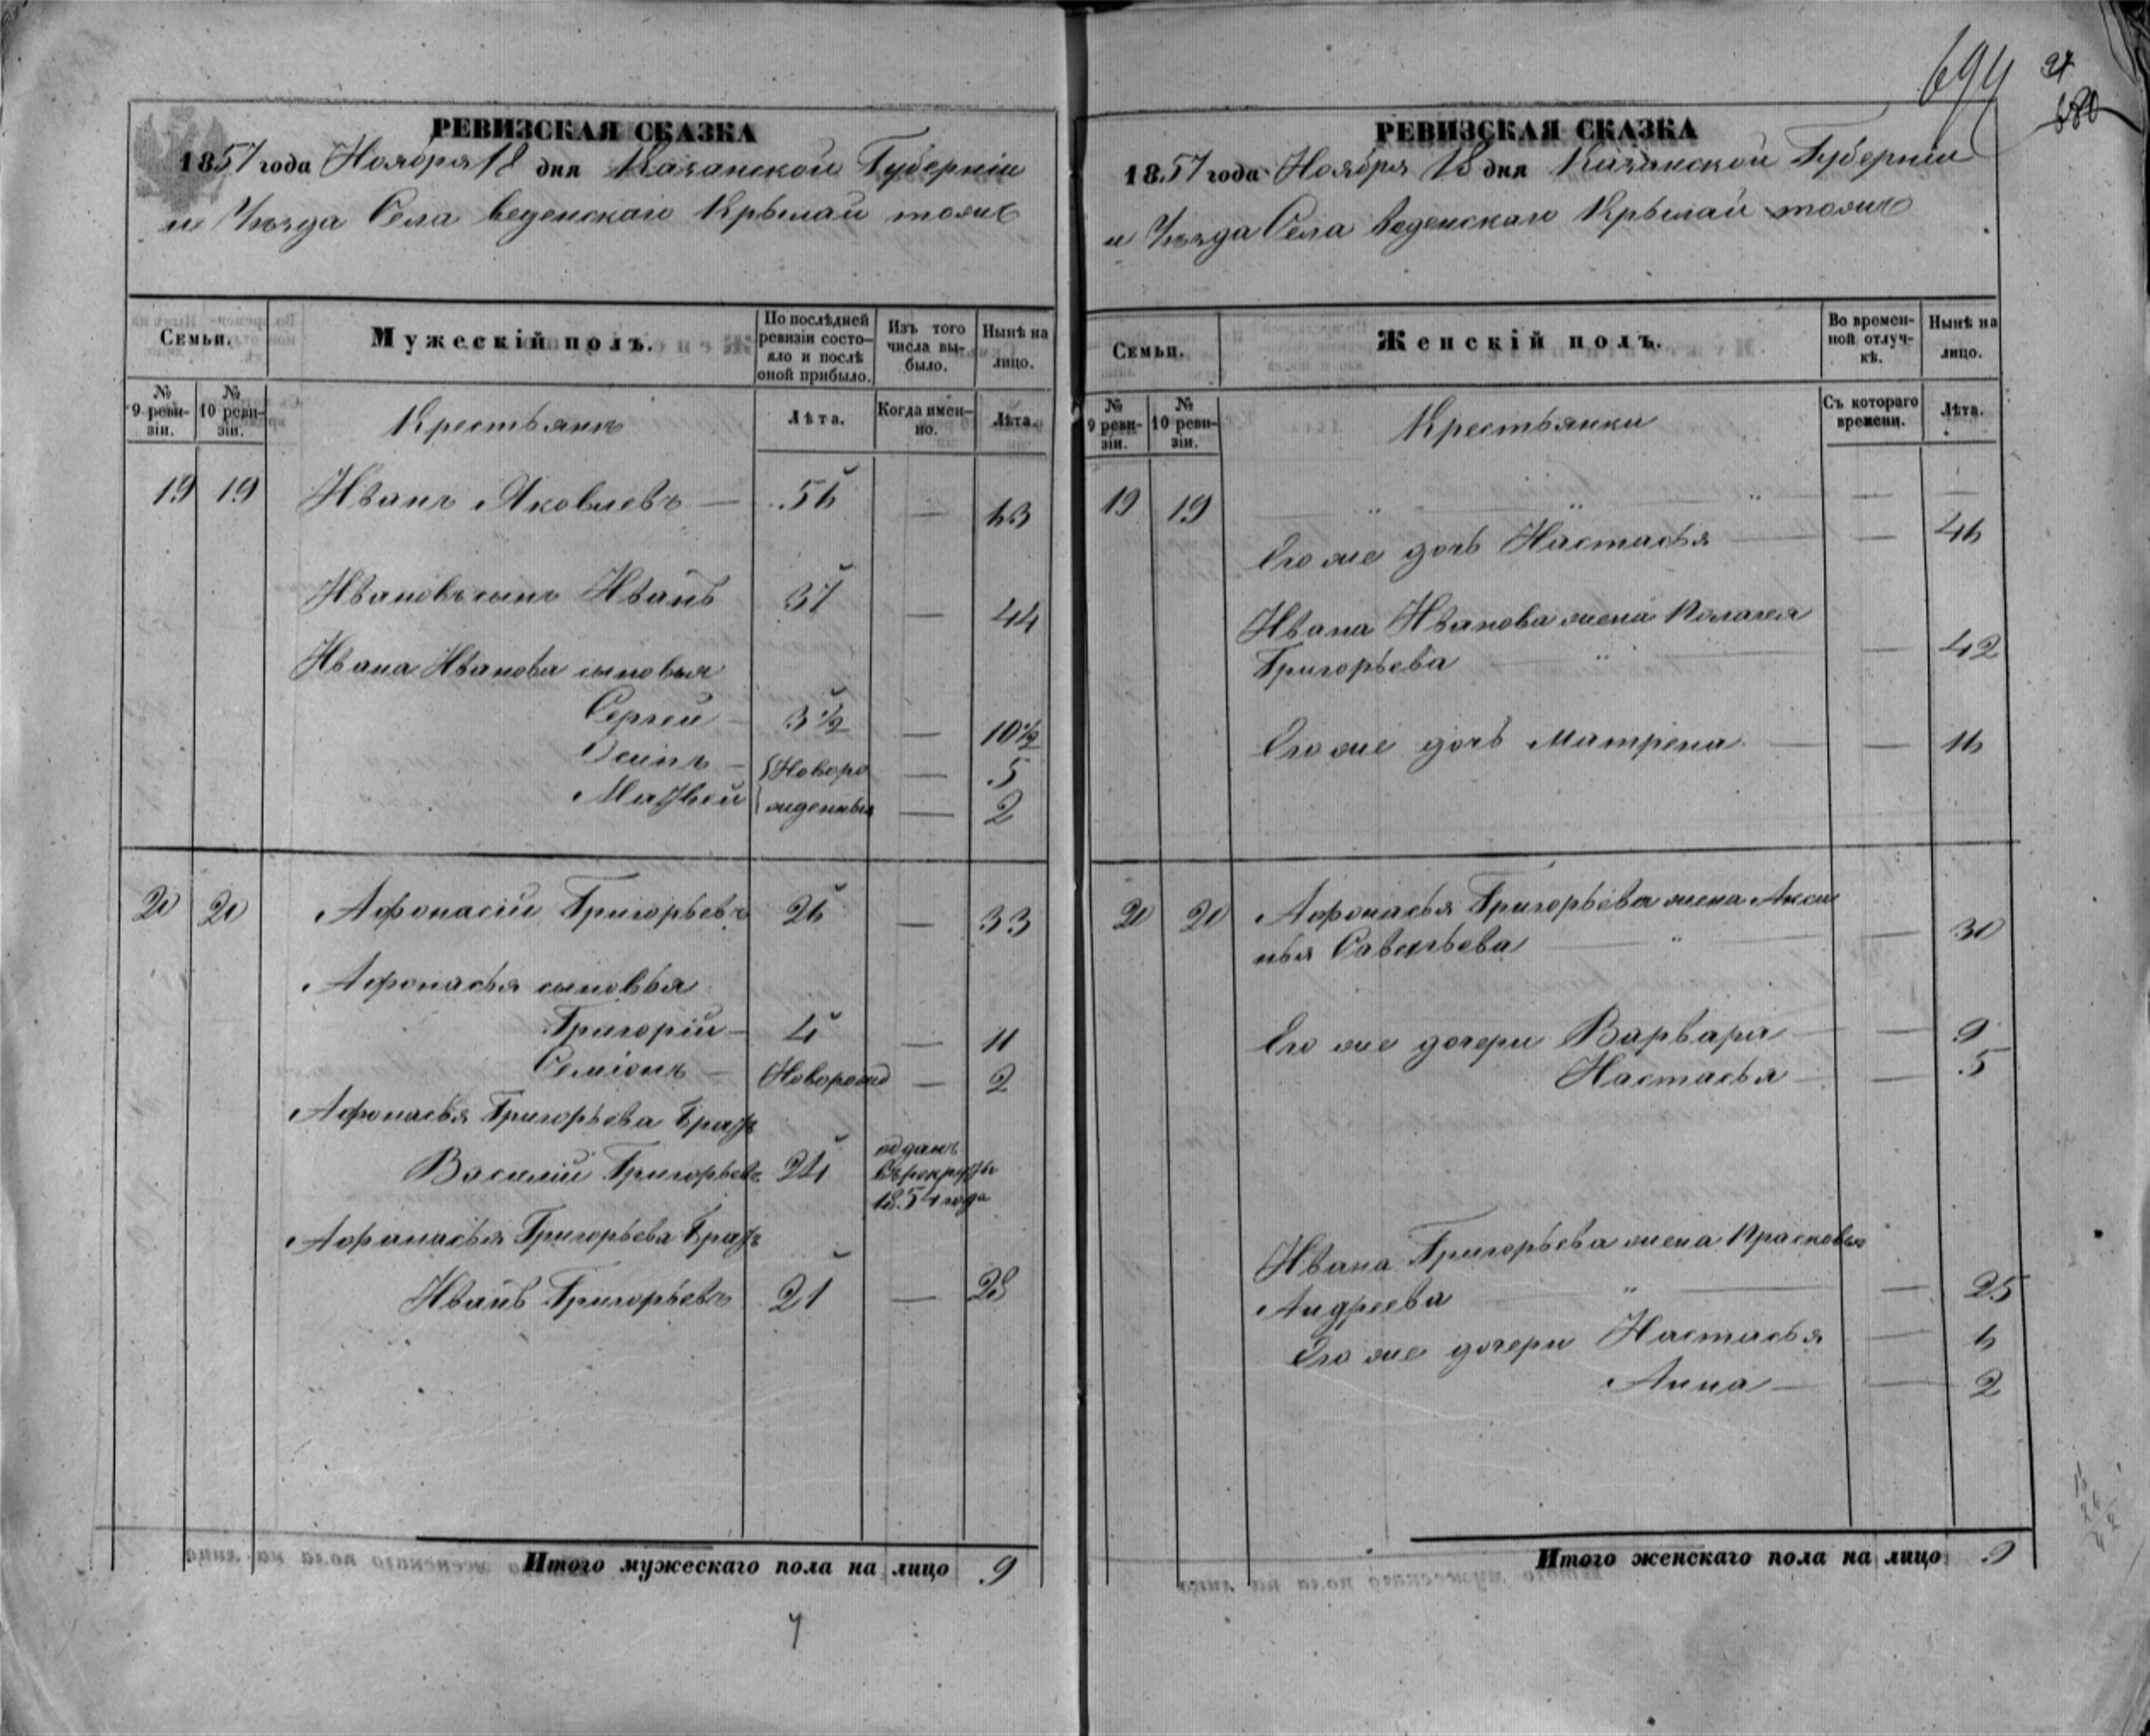 694
680
РЕВИЗСКАЯ СКАЗКА
1857 года Ноября 18 дня Казанской Губерніи
и Уѣзда Села Веденскаго Крылай тожъ
Семьи.
Мужескій полъ.
По послѣдней ревизіи состо-
яло и послѣ
оной прибыло.
Изъ того
числа вы-
было.
Нынѣ на
лицо.
№
9 реви-
зіи.
№
10 реви-
зіи.
Крестьянъ
Лѣта.
Когда имен-
но.
Лѣта.
19 19 Иванъ Яковлевъ — 56 — 63
Ивановъ сынъ Иванъ 37 — 44
Ивана Иванова сыновья
Сергей — 3 1/2 — 10 1/2
Осипъ — Новоро — 5
Матвей жденныя — 2
20 20 Афонасіи Григорьевъ 26 — 33
Афонасья сыновья
Григоріи — 4 — 11
Семіонъ — Новорожд — 2
Афонасья Григорьева братъ
Василіи Григорьевъ 24 отданъ
въ рекруты
1854 года
Афанасья Григорьева братъ
Иванъ Григорьевъ 21 — 28
Итого мужескаго пола на лицо 9
РЕВИЗСКАЯ СКАЗКА
1857 года Ноября 18 дня Казанской Губерніи
и Уѣзда Села Веденскаго Крылай тожъ
Семьи.
Женскій полъ.
Во времен-
ной отлуч-
кѣ.
Нынѣ на
лицо.
№
9 реви-
зіи.
№
10 реви-
зіи.
Крестьянки
Съ котораго
времени.
Лѣта.
19 19 " " " — —
Его же дочь Настасья — — 46
Ивана Иванова жена Пелагея
Григорьева " — 42
Его же дочь Матрена — — 16
20 20 Афонасья Григорьева жена Акси
нья Савельева " — 30
Его же дочери Варвара — — 9
Настасья — — 5
Ивана Григорьева жена Прасковья
Андреева " — 25
Его же дочери Настасья — 6
Анна — — 2
Итого женскаго пола на лицо 9